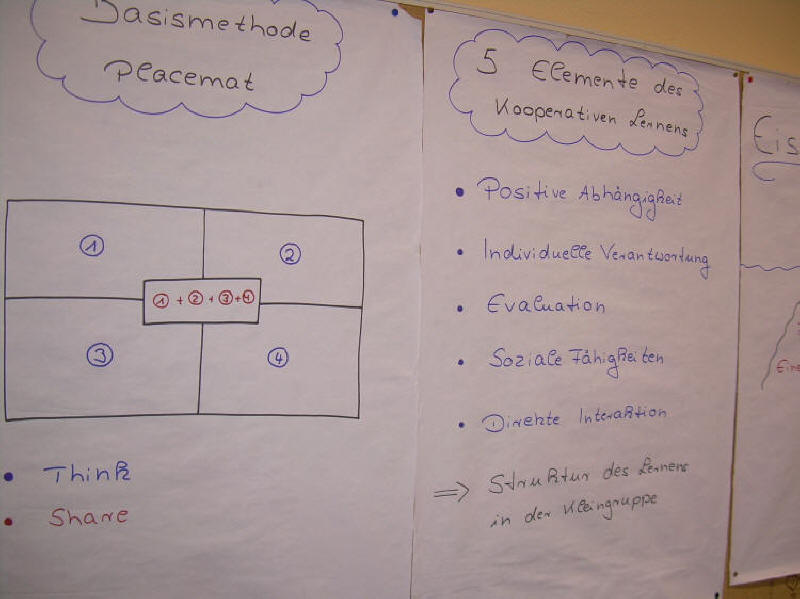 Basismethode
Placemat
1
2
1 + 2 + 3 + 4
3
4
• Think
• Share
5 Elemente des
Kooperativen Lernens
• Positive Abhängigkeit
• Individuelle Verantwortung
• Evaluation
• Soziale Fähigkeiten
• Direkte Interaktion
⇒ Struktur des Lernens
in der Kleingruppe
Eis
Eine